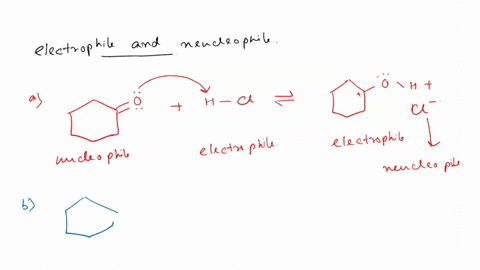 electrophile and neucleophile.
a) O + H - Cl ⇌ O H + Cl⁻
nucleophile electrophile electrophile
neucleo pile
b)